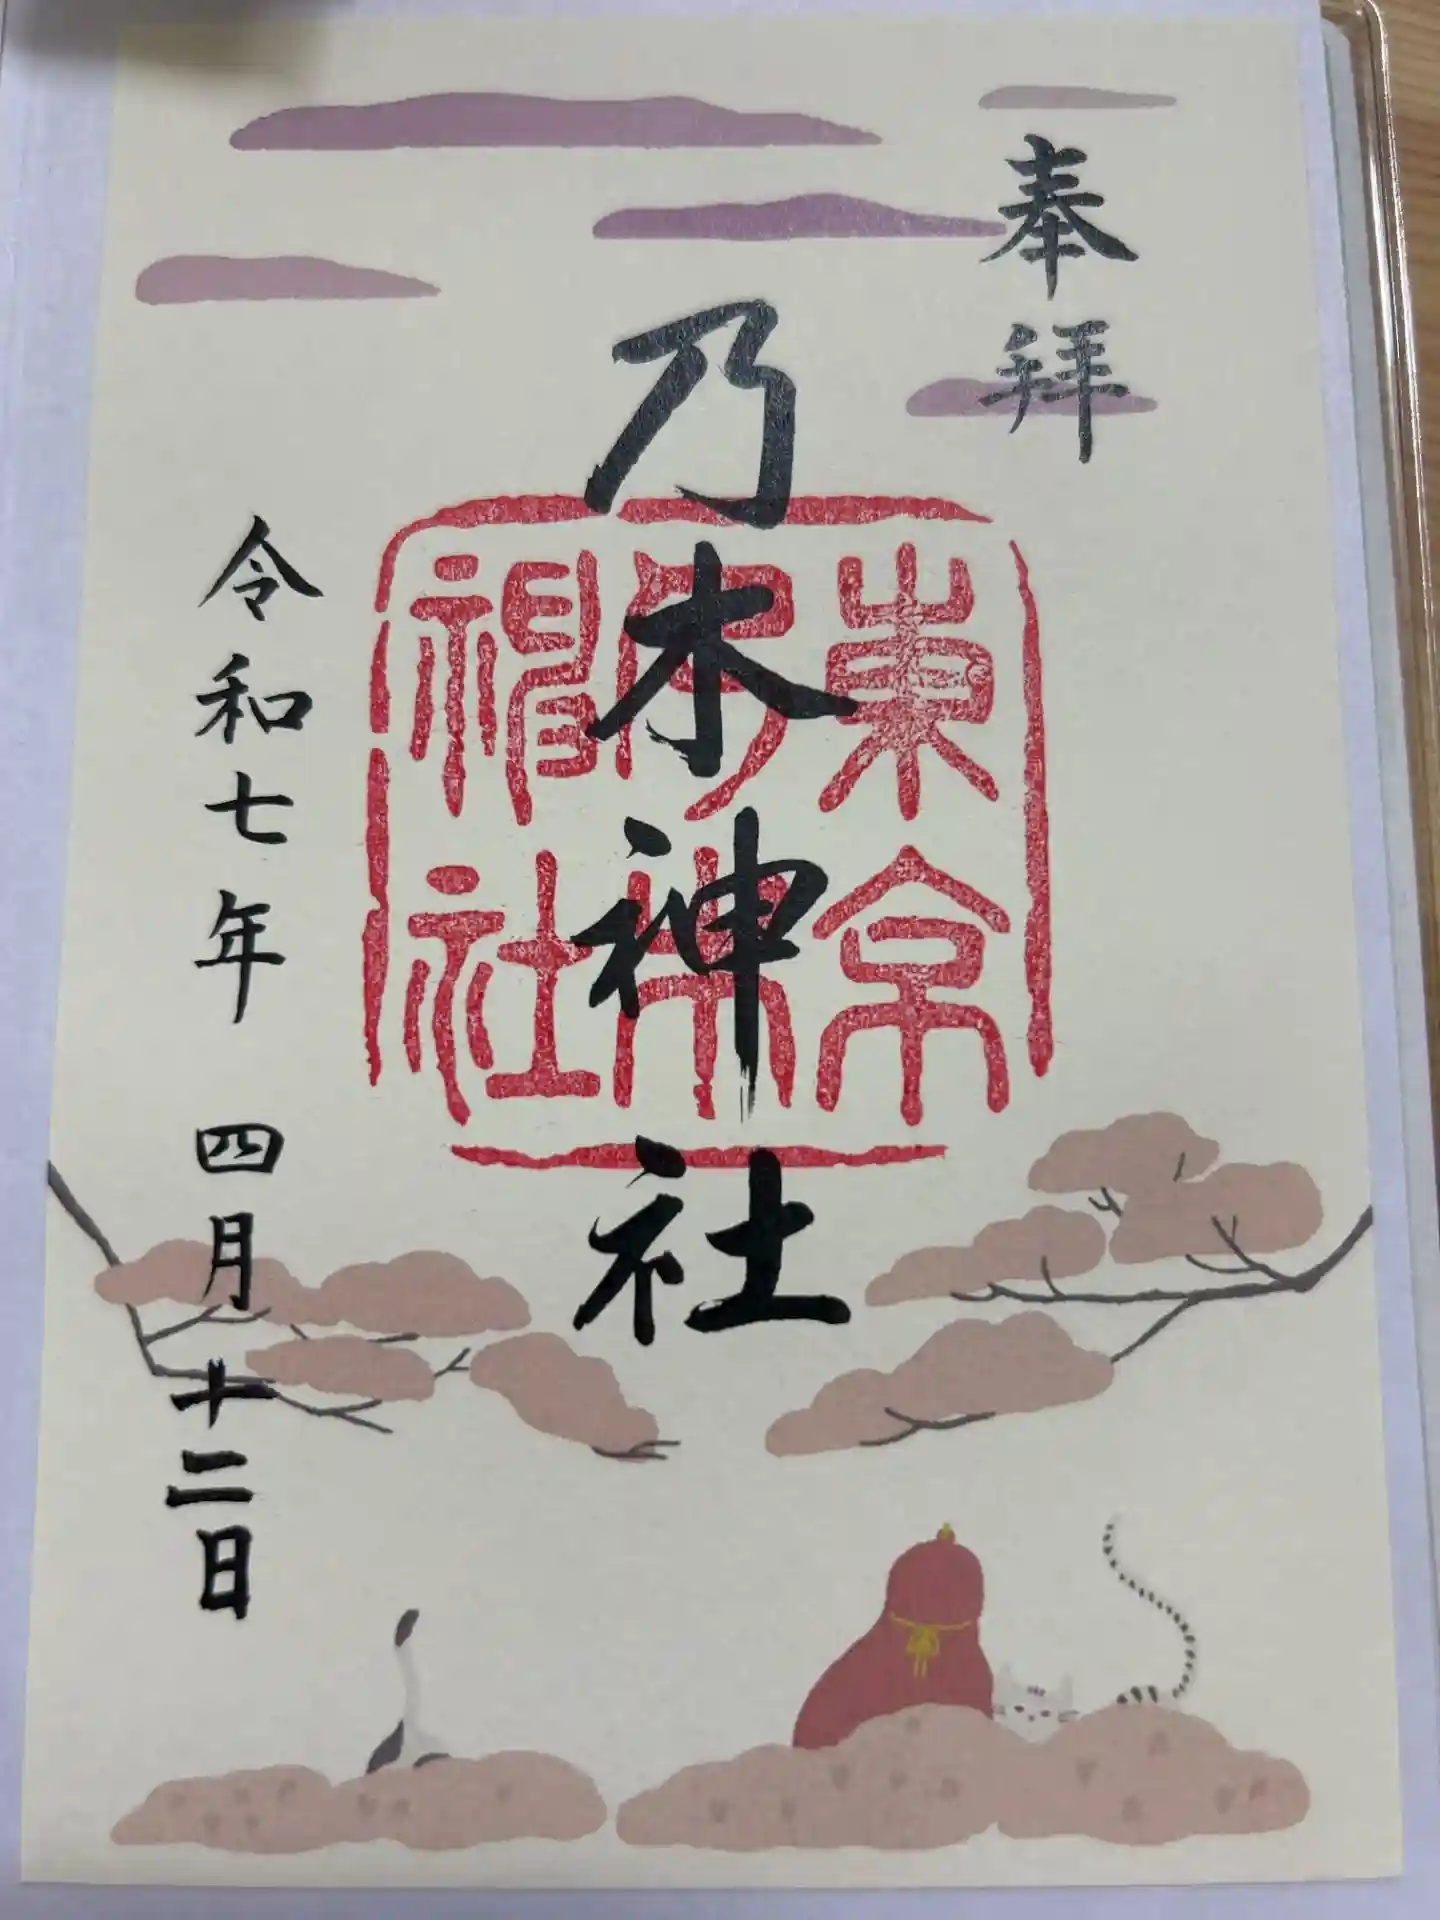 奉拜
乃木神社
東京
乃木
神社
令和七年 四月十二日